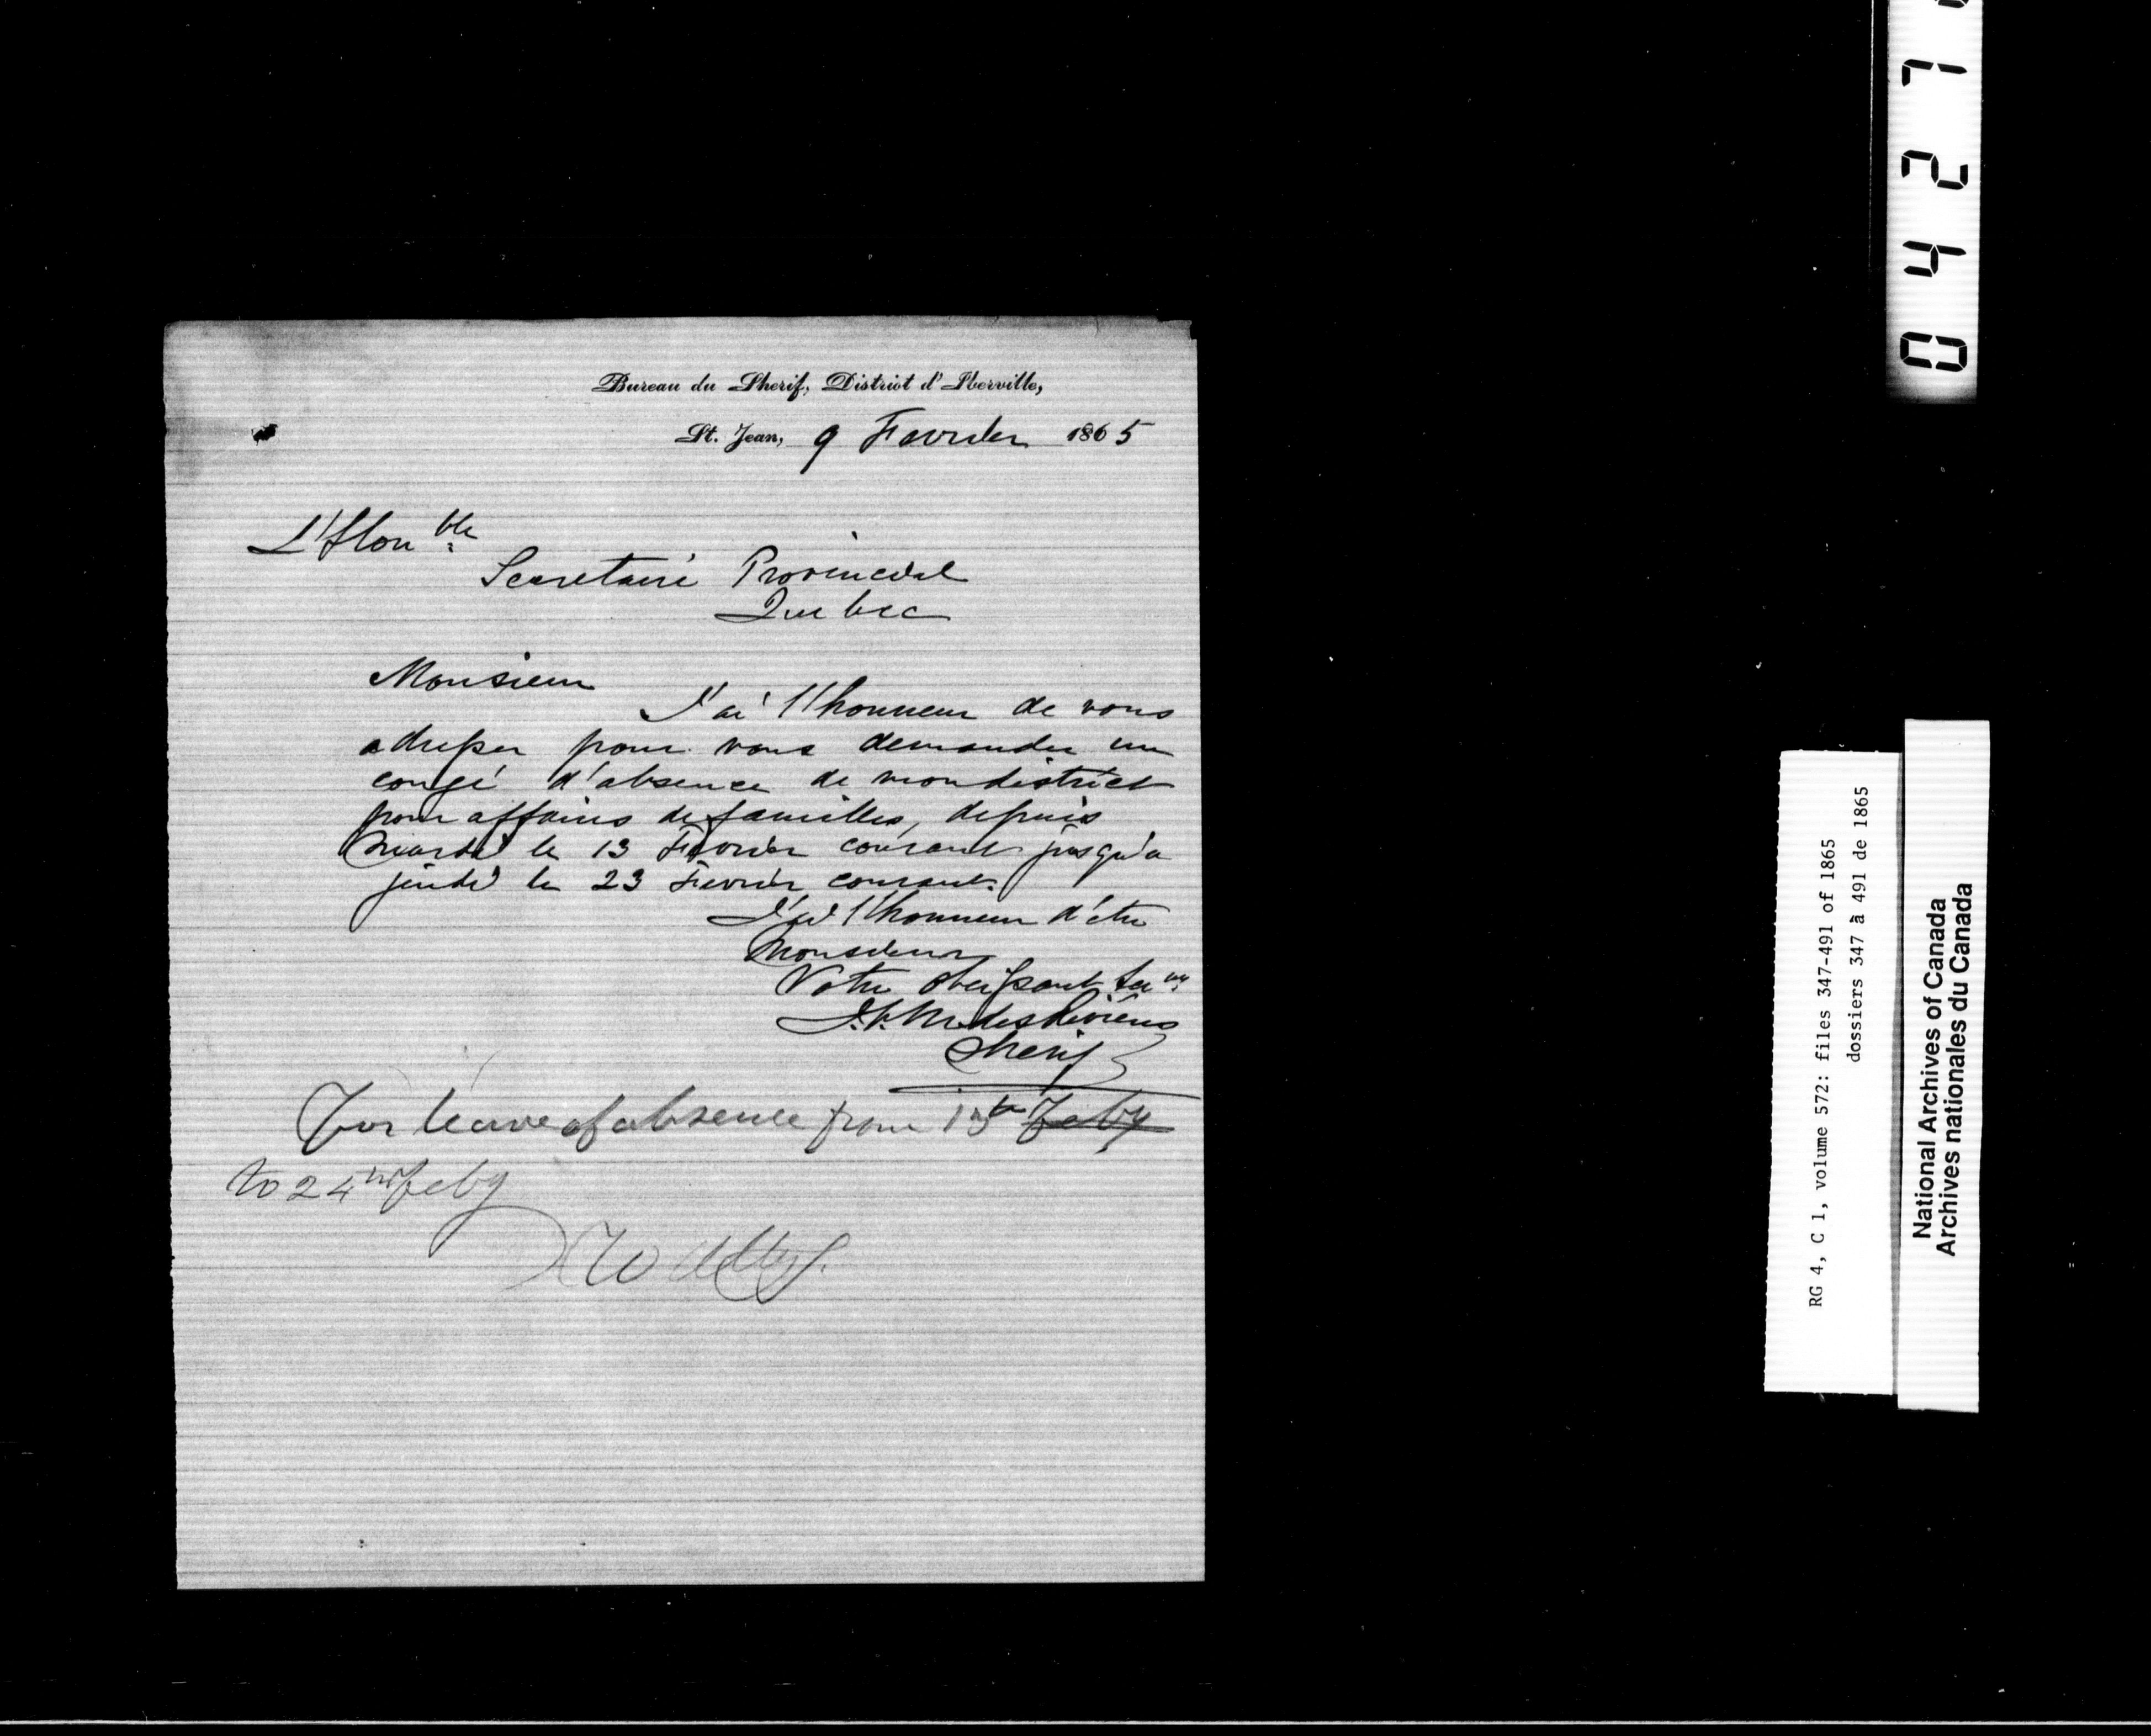 Bureau du Sherif, District d'Iberville,
St. Jean, 9 Fevrier 1865
L'Honble
Secretaire Provincial
Quebec
Monsieur
J'ai l'honneur de vous
adresser pour vous demander un
congé d'absence de mon district
pour affaires de familles, depuis
Mardi le 13 Fevrier courant jusqu'a
jeudi le 23 Fevrier courant.
J'ai l'honneur d'etre
Monsieur
Votre obeissant
desRivières
Sherif
For leave of absence from 13th Feby
to 24th Feby
0427
RG 4, C 1, volume 572: files 347-491 of 1865
dossiers 347 à 491 de 1865
National Archives of Canada
Archives nationales du Canada